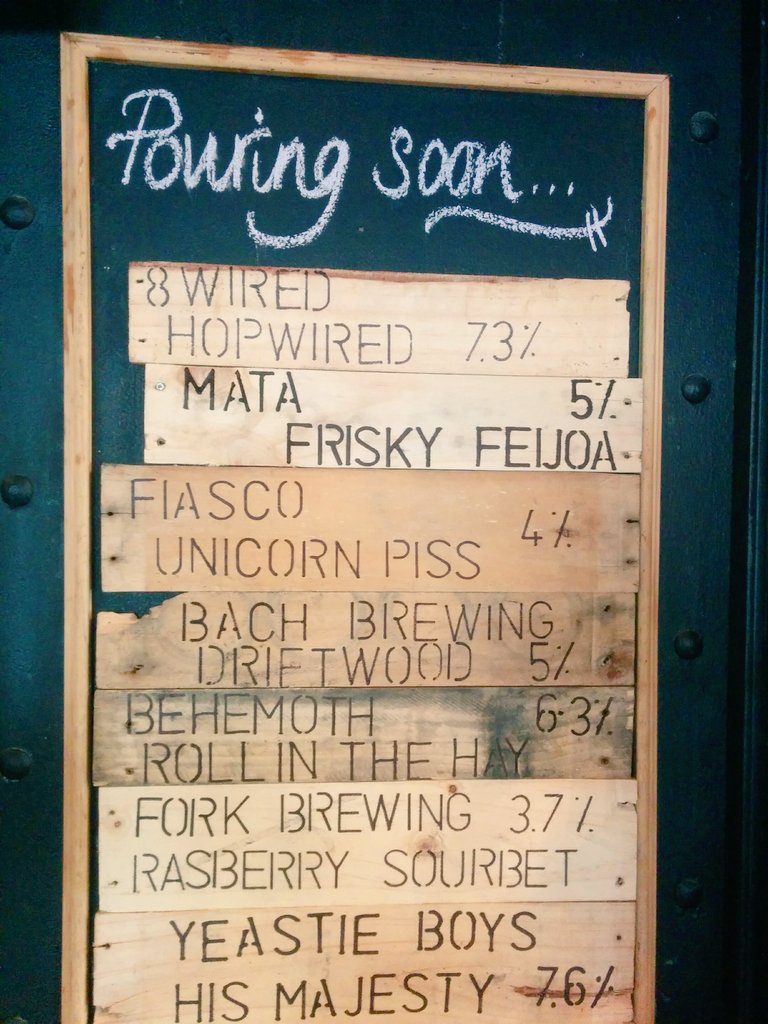 Pouring soon...
8 WIRED
HOPWIRED 7.3%
MATA 5%
FRISKY FEIJOA
FIASCO
UNICORN PISS 4%
BACH BREWING
DRIFTWOOD 5%
BEHEMOTH 6.3%
ROLL IN THE HAY
FORK BREWING 3.7%
RASBERRY SOURBET
YEASTIE BOYS
HIS MAJESTY 7.6%